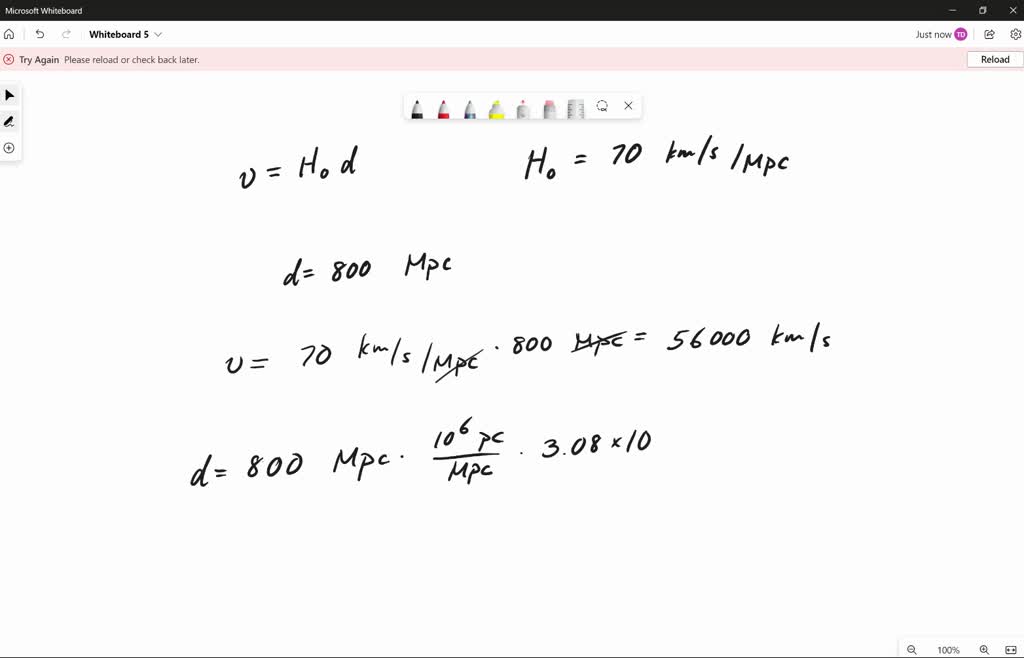 Microsoft Whiteboard
Whiteboard 5
Just now TD
Try Again Please reload or check back later.
Reload
v = H₀ d
H₀ = 70 km/s /Mpc
d = 800 Mpc
v = 70 km/s /Mpc · 800 Mpc = 56000 km/s
d = 800 Mpc · 10⁶ pc / Mpc · 3.08 × 10
100%